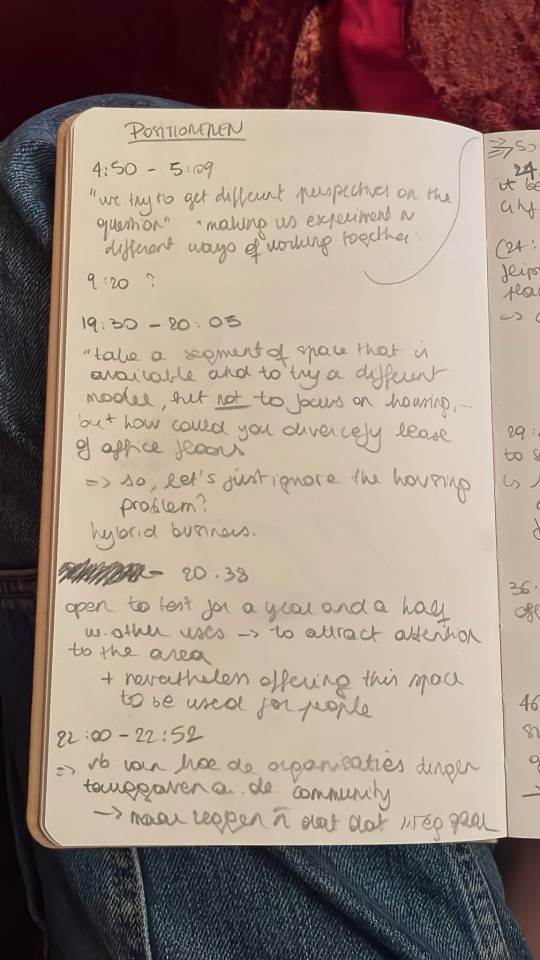 POSITIONEREN
4:50 - 5:09
"we try to get different perspectives on the
question" "making us experiment w
different ways of working together".
9:20 ?
19:30 - 20:05
"take a segment of space that is
available and to try a different
model, but not to focus on housing,...
but how could you divercefy lease
of office floors
=> so, let's just ignore the housing
problem?
hybrid business.
- 20.38
open to test for a year and a half
w. other uses -> to attract attention
to the area
+ nevertheless offering this space
to be used for people
22:00 - 22:52
=> vb van hoe de organisaties dingen
teruggaven a. de community
-> maar zeggen n dat dat weg gaat
=> so
24
it be
city
(24:
29:
to s
36:
46